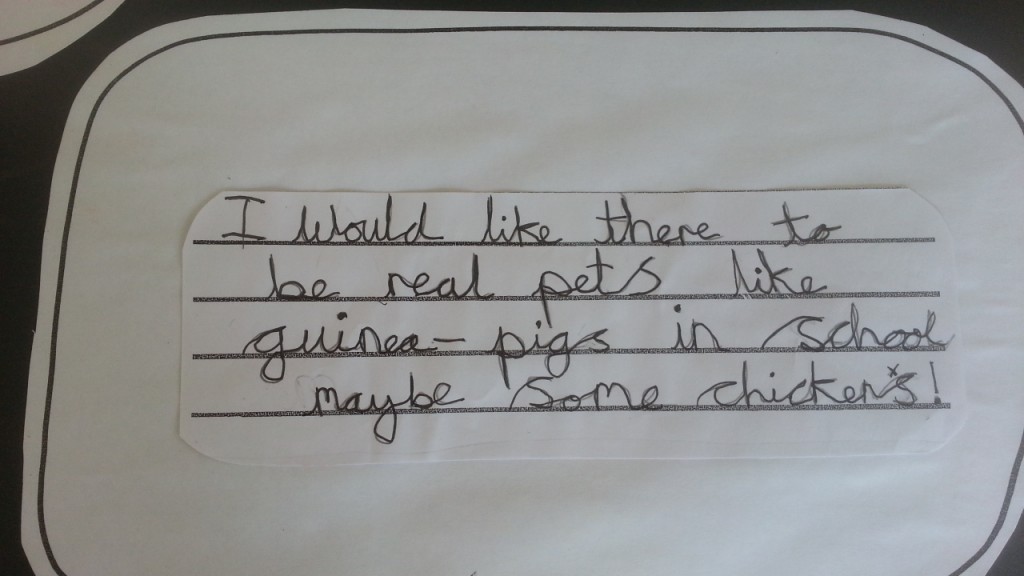 I would like there to
be real pets like
guinea-pigs in school
maybe some chicken's!